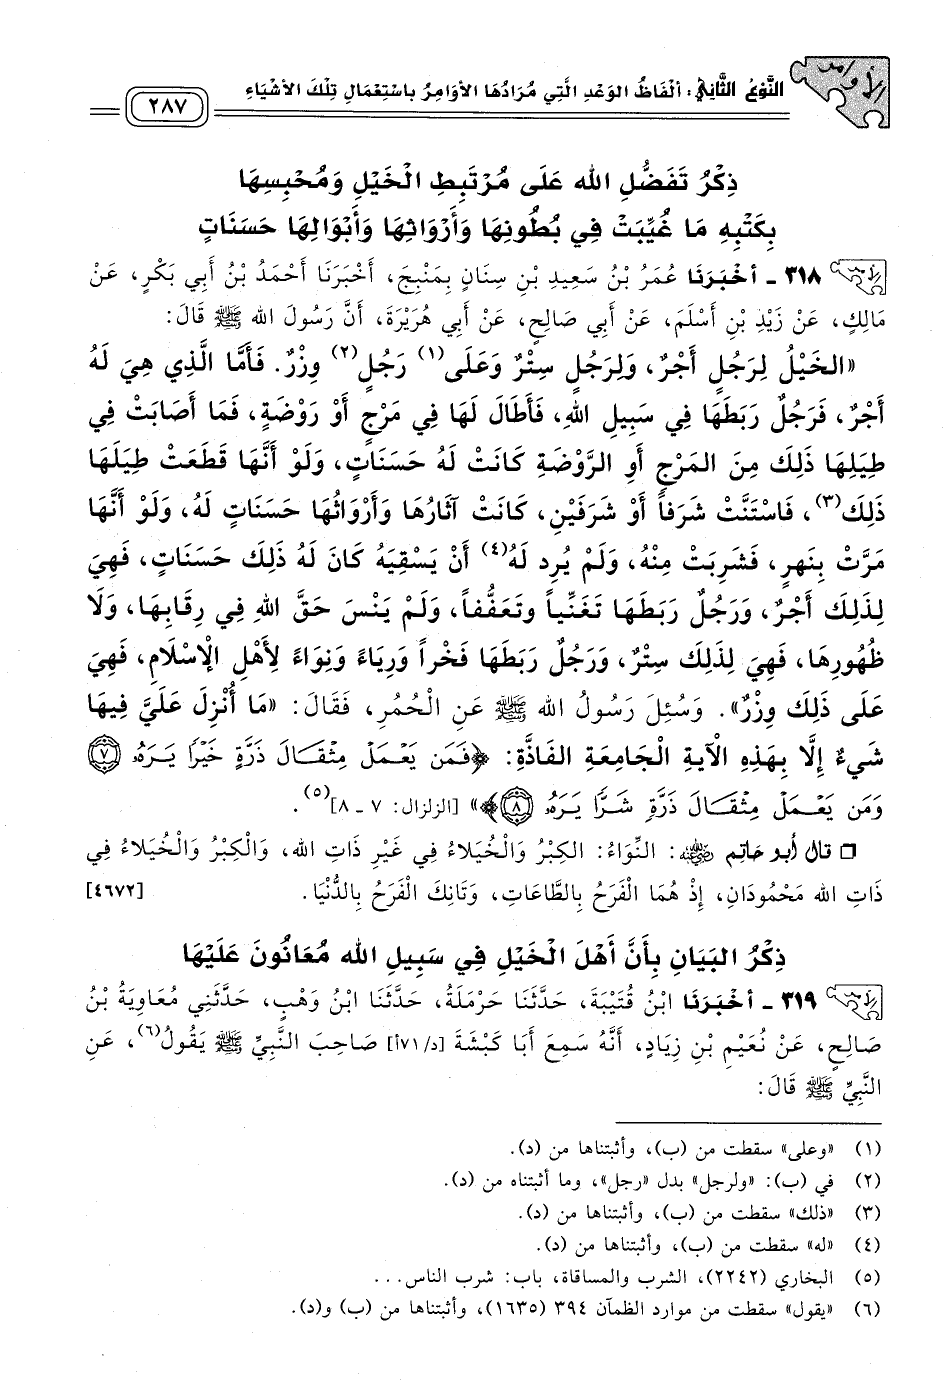 الأوامر
النَّوْعُ الثَّانِي: ألْفَاظُ الوَعْدِ الَّتِي مُرَادُهَا الأوَامِرُ بِاسْتِعْمَالِ تِلْكَ الأشْيَاءِ
٢٨٧
ذِكْرُ تَفَضُّلِ الله عَلَى مُرْتَبِطِ الْخَيْلِ وَمُحْبِسِهَا
بِكَتْبِهِ مَا غُيِّبَتْ فِي بُطُونِهَا وَأَرْوَاثِهَا وَأَبْوَالِهَا حَسَنَاتٍ
٣١٨ - أخْبَرَنَا عُمَرُ بْنُ سَعِيدِ بْنِ سِنَانٍ بِمَنْبِجَ، أَخْبَرَنَا أَحْمَدُ بْنُ أَبِي بَكْرٍ، عَنْ
مَالِكٍ، عَنْ زَيْدِ بْنِ أَسْلَمَ، عَنْ أَبِي صَالِحٍ، عَنْ أَبِي هُرَيْرَةَ، أَنَّ رَسُولَ الله ﷺ قَالَ:
«الخَيْلُ لِرَجُلٍ أَجْرٌ، وَلِرَجُلٍ سِتْرٌ وَعَلَى(١) رَجُلٍ(٢) وِزْرٌ. فَأَمَّا الَّذِي هِيَ لَهُ
أَجْرٌ، فَرَجُلٌ رَبَطَهَا فِي سَبِيلِ اللهِ، فَأَطَالَ لَهَا فِي مَرْجٍ أَوْ رَوْضَةٍ، فَمَا أَصَابَتْ فِي
طِيَلِهَا ذَلِكَ مِنَ المَرْجِ أَوِ الرَّوْضَةِ كَانَتْ لَهُ حَسَنَاتٍ، وَلَوْ أَنَّهَا قَطَعَتْ طِيَلَهَا
ذَلِكَ(٣)، فَاسْتَنَّتْ شَرَفاً أَوْ شَرَفَيْنِ، كَانَتْ آثَارُهَا وَأَرْوَاثُهَا حَسَنَاتٍ لَهُ، وَلَوْ أَنَّهَا
مَرَّتْ بِنَهرٍ، فَشَرِبَتْ مِنْهُ، وَلَمْ يُرِد لَهُ(٤) أَنْ يَسْقِيَهُ كَانَ لَهُ ذَلِكَ حَسَنَاتٍ، فَهِيَ
لِذَلِكَ أَجْرٌ، وَرَجُلٌ رَبَطَهَا تَغَنِّياً وتَعَفُّفاً، وَلَمْ يَنْسَ حَقَّ اللهِ فِي رِقَابِهَا، وَلَا
ظُهُورِهَا، فَهِيَ لِذَلِكَ سِتْرٌ، وَرَجُلٌ رَبَطَهَا فَخْراً وَرِيَاءً وَنِوَاءً لِأَهْلِ الإسْلَامِ، فَهِيَ
عَلَى ذَلِكَ وِزْرٌ». وَسُئِلَ رَسُولُ الله ﷺ عَنِ الْحُمُرِ، فَقَالَ: «مَا أُنْزِلَ عَلَيَّ فِيهَا
شَيءٌ إلَّا بِهَذِهِ الْآيَةِ الْجَامِعَةِ الفَاذَّةِ: ﴿فَمَن يَعْمَلْ مِثْقَالَ ذَرَّةٍ خَيْرًا يَرَهُۥ ٧
وَمَن يَعْمَلْ مِثْقَالَ ذَرَّةٍ شَرًّا يَرَهُۥ ٨﴾» [الزلزال: ٧ - ٨](٥).
❒ قال أبو حاتم رضي الله عنه: النِّوَاءُ: الكِبْرُ وَالْخُيَلَاءُ فِي غَيْرِ ذَاتِ الله، وَالْكِبْرُ وَالْخُيَلَاءُ فِي
ذَاتِ الله مَحْمُودَانِ، إِذْ هُمَا الْفَرَحُ بِالطَّاعَاتِ، وَتَانِكَ الْفَرَحُ بِالدُّنْيَا. [٤٦٧٢]
ذِكْرُ البَيَانِ بِأَنَّ أَهْلَ الْخَيْلِ فِي سَبِيلِ الله مُعَانُونَ عَلَيْهَا
٣١٩ - أخْبَرَنَا ابْنُ قُتَيْبَةَ، حَدَّثَنَا حَرْمَلَةُ، حَدَّثَنَا ابْنُ وَهْبٍ، حَدَّثَنِي مُعَاوِيَةُ بْنُ
صَالِحٍ، عَنْ نُعَيْمِ بْنِ زِيَادٍ، أَنَّهُ سَمِعَ أَبَا كَبْشَةَ [د/٧١أ] صَاحِبَ النَّبِيِّ ﷺ يَقُولُ(٦)، عَنِ
النَّبِيِّ ﷺ قَالَ:
(١) «وعلى» سقطت من (ب)، وأثبتناها من (د).
(٢) في (ب): «ولرجل» بدل «رجل»، وما أثبتناه من (د).
(٣) «ذلك» سقطت من (ب)، وأثبتناها من (د).
(٤) «له» سقطت من (ب)، وأثبتناها من (د).
(٥) البخاري (٢٢٤٢)، الشرب والمساقاة، باب: شرب الناس...
(٦) «يقول» سقطت من موارد الظمآن ٣٩٤ (١٦٣٥)، وأثبتناها من (ب) و(د).